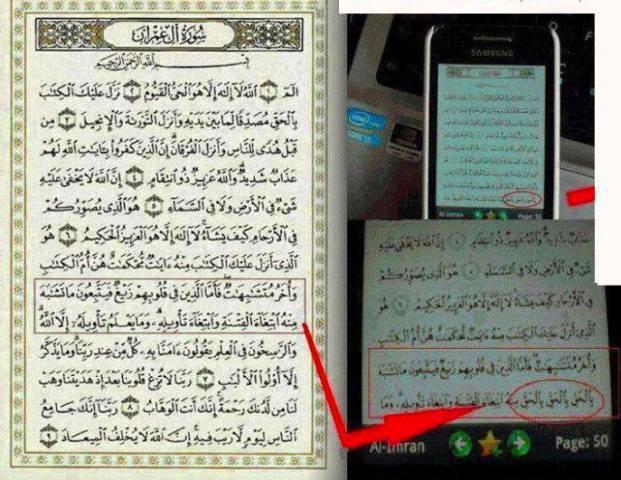 سُورَةُ آلِ عِمْرَان
بِسْمِ اللَّهِ الرَّحْمَٰنِ الرَّحِيمِ
الٓمٓ ١ ٱللَّهُ لَآ إِلَٰهَ إِلَّا هُوَ ٱلْحَىُّ ٱلْقَيُّومُ ٢ نَزَّلَ عَلَيْكَ ٱلْكِتَٰبَ
بِٱلْحَقِّ مُصَدِّقًا لِّمَا بَيْنَ يَدَيْهِ وَأَنزَلَ ٱلتَّوْرَىٰةَ وَٱلْإِنجِيلَ ٣ مِن
قَبْلُ هُدًى لِّلنَّاسِ وَأَنزَلَ ٱلْفُرْقَانَ إِنَّ ٱلَّذِينَ كَفَرُوا۟ بِـَٔايَٰتِ ٱللَّهِ لَهُمْ
عَذَابٌ شَدِيدٌ وَٱللَّهُ عَزِيزٌ ذُو ٱنتِقَامٍ ٤ إِنَّ ٱللَّهَ لَا يَخْفَىٰ عَلَيْهِ
شَىْءٌ فِى ٱلْأَرْضِ وَلَا فِى ٱلسَّمَآءِ ٥ هُوَ ٱلَّذِى يُصَوِّرُكُمْ
فِى ٱلْأَرْحَامِ كَيْفَ يَشَآءُ لَآ إِلَٰهَ إِلَّا هُوَ ٱلْعَزِيزُ ٱلْحَكِيمُ ٦ هُوَ
ٱلَّذِىٓ أَنزَلَ عَلَيْكَ ٱلْكِتَٰبَ مِنْهُ ءَايَٰتٌ مُّحْكَمَٰتٌ هُنَّ أُمُّ ٱلْكِتَٰبِ
وَأُخَرُ مُتَشَٰبِهَٰتٌ فَأَمَّا ٱلَّذِينَ فِى قُلُوبِهِمْ زَيْغٌ فَيَتَّبِعُونَ مَا تَشَٰبَهَ
مِنْهُ ٱبْتِغَآءَ ٱلْفِتْنَةِ وَٱبْتِغَآءَ تَأْوِيلِهِۦ وَمَا يَعْلَمُ تَأْوِيلَهُۥٓ إِلَّا ٱللَّهُ
وَٱلرَّٰسِخُونَ فِى ٱلْعِلْمِ يَقُولُونَ ءَامَنَّا بِهِۦ كُلٌّ مِّنْ عِندِ رَبِّنَا وَمَا يَذَّكَّرُ
إِلَّآ أُو۟لُوا۟ ٱلْأَلْبَٰبِ ٧ رَبَّنَا لَا تُزِغْ قُلُوبَنَا بَعْدَ إِذْ هَدَيْتَنَا وَهَبْ
لَنَا مِن لَّدُنكَ رَحْمَةً إِنَّكَ أَنتَ ٱلْوَهَّابُ ٨ رَبَّنَآ إِنَّكَ جَامِعُ
ٱلنَّاسِ لِيَوْمٍ لَّا رَيْبَ فِيهِ إِنَّ ٱللَّهَ لَا يُخْلِفُ ٱلْمِيعَادَ ٩
SAMSUNG
intel
CORE i5
Al-Imran Page: 50
عَذَابٌ شَدِيدٌ وَٱللَّهُ عَزِيزٌ ذُو ٱنتِقَامٍ ٤ إِنَّ ٱللَّهَ لَا يَخْفَىٰ عَلَيْهِ
شَىْءٌ فِى ٱلْأَرْضِ وَلَا فِى ٱلسَّمَآءِ ٥ هُوَ ٱلَّذِى يُصَوِّرُكُمْ
فِى ٱلْأَرْحَامِ كَيْفَ يَشَآءُ لَآ إِلَٰهَ إِلَّا هُوَ ٱلْعَزِيزُ ٱلْحَكِيمُ ٦ هُوَ
ٱلَّذِىٓ أَنزَلَ عَلَيْكَ ٱلْكِتَٰبَ مِنْهُ ءَايَٰتٌ مُّحْكَمَٰتٌ هُنَّ أُمُّ ٱلْكِتَٰبِ
وَأُخَرُ مُتَشَٰبِهَٰتٌ فَأَمَّا ٱلَّذِينَ فِى قُلُوبِهِمْ زَيْغٌ فَيَتَّبِعُونَ مَا تَشَٰبَهَ
بِٱلْحَقِّ بِٱلْحَقِّ بِٱلْحَقِّ مِنْهُ ٱبْتِغَآءَ ٱلْفِتْنَةِ وَٱبْتِغَآءَ تَأْوِيلِهِۦ وَمَا
Al-Imran Page: 50